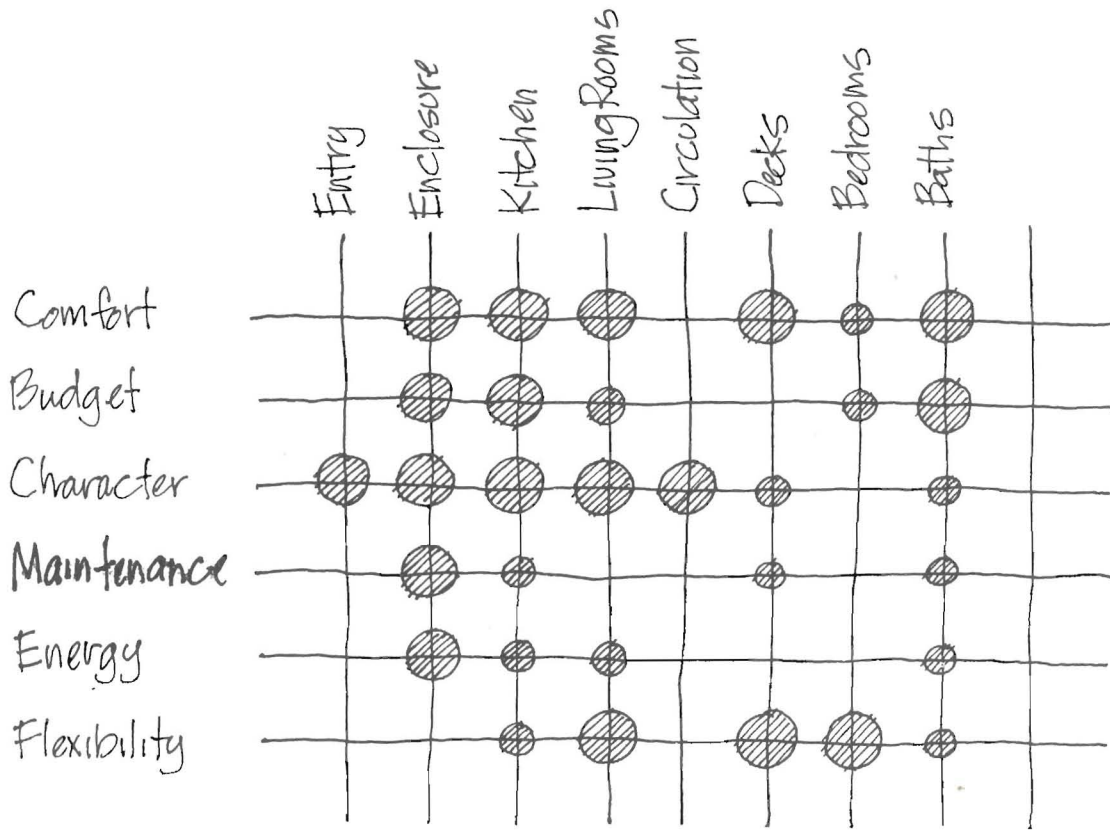 Entry
Enclosure
Kitchen
Living Rooms
Circulation
Decks
Bedrooms
Baths
Comfort
Budget
Character
Maintenance
Energy
Flexibility